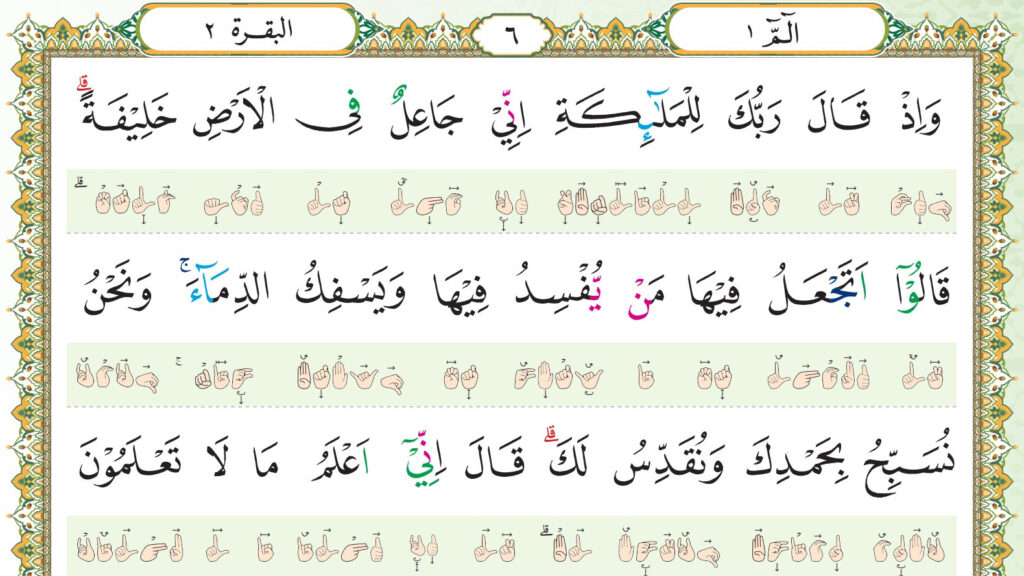 الٓمّٓ ١ ٦ البقرة ٢
وَاِذْ قَالَ رَبُّكَ لِلْمَلٰٓئِكَةِ اِنِّيْ جَاعِلٌ فِى الْاَرْضِ خَلِيْفَةًؕ قلے
قَالُوْٓا اَتَجْعَلُ فِيْهَا مَنْ يُّفْسِدُ فِيْهَا وَيَسْفِكُ الدِّمَآءَۚ وَنَحْنُ
نُسَبِّحُ بِحَمْدِكَ وَنُقَدِّسُ لَكَ قلے قَالَ اِنِّيْٓ اَعْلَمُ مَا لَا تَعْلَمُوْنَ